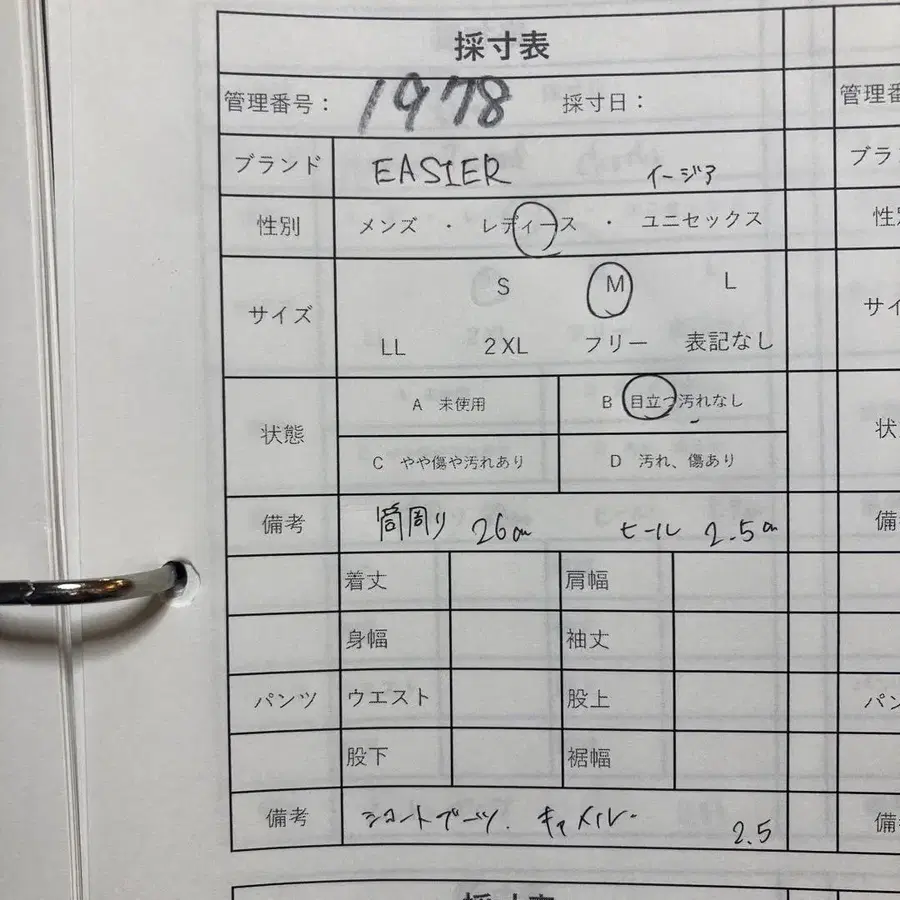 採寸表
管理番号： 1978 採寸日： 管理番
ブランド EASIER イージア ブラ
性別 メンズ ・ レディース ・ ユニセックス 性
S M L
サイズ サイ
LL 2XL フリー 表記なし
A 未使用 B 目立つ汚れなし
状態 状
C やや傷や汚れあり D 汚れ、傷あり
備考 筒周り 26cm ヒール 2.5cm 備
着丈 肩幅
身幅 袖丈
パンツ ウエスト 股上 パン
股下 裾幅
備考 ショートブーツ. キャメル. 2.5 備
採寸表